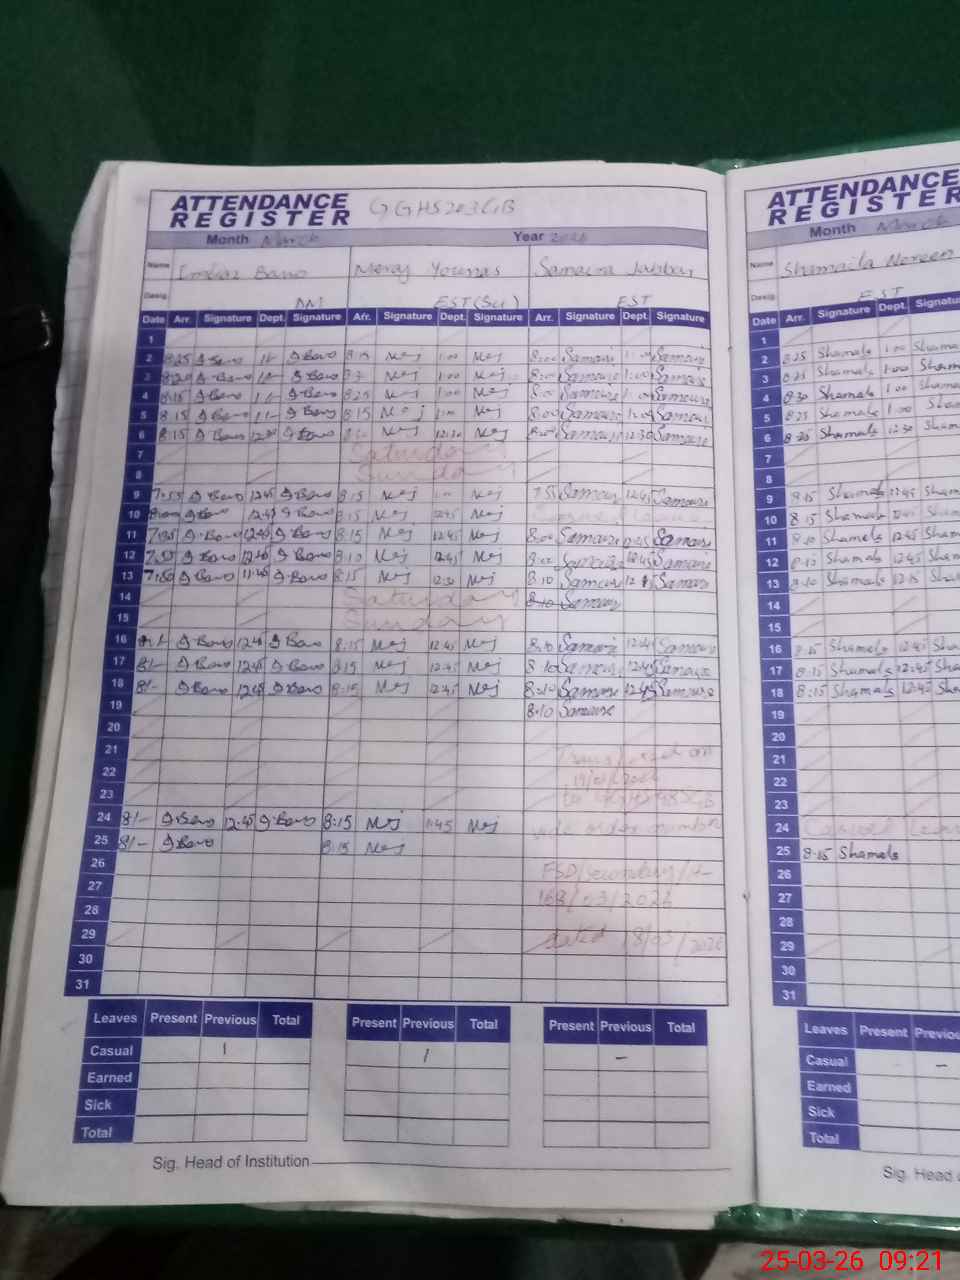 ATTENDANCE
REGISTER
GGHS 203 GB
Month March Year 2026
Name Imtiaz Bano Meraj Younas Samaira Jabbar
Desig. EST (Sci) EST
Date Arr. Signature Dept. Signature Arr. Signature Dept. Signature Arr. Signature Dept. Signature
1
2 8:25 Bano Bano Mej 1:00 Mej 8:00 Samaira Samaira
3 8:20 Bano Bano Mej 1:00 Mej 8:00 Samaira 1:00 Samaira
4 8:15 Bano Bano 8:25 Mej 1:00 Mej 8:00 Samaira Samaira
5 8:15 Bano Bano 8:15 Mej 1:00 Mej 8:00 Samaira 1:00 Samaira
6 8:15 Bano 12:30 Bano Mej 12:30 Mej 8:00 Samaira 12:30 Samaira
7 Saturday
8 Sunday
9 7:55 Bano 12:45 Bano 8:15 Mej Mej 7:55 Samaira 12:45 Samaira
10 Bano 12:45 Bano 8:15 Mej 12:45 Mej
11 7:55 Bano 12:45 Bano 8:15 Mej 12:45 Mej 8:00 Samaira 12:45 Samaira
12 7:55 Bano 12:45 Bano 8:10 Mej 12:45 Mej 8:00 Samaira 12:45 Samaira
13 7:50 Bano Bano 8:15 Mej 12:30 Mej 8:10 Samaira Samaira
14 Saturday 8:10 Samaira
15 Sunday
16 Bano 12:45 Bano 8:15 Mej 12:45 Mej 8:10 Samaira 12:45 Samaira
17 8/- Bano 12:45 Bano 8:15 Mej 12:45 Mej 8:10 Samaira 12:45 Samaira
18 8/- Bano 12:45 Bano 8:15 Mej 12:45 Mej 8:10 Samaira 12:45 Samaira
19 8:10 Samaira
20
21 Transferred on
22 19/03/2026
23 to
24 8/- Bano 12:45 Bano 8:15 Mej 1:45 Mej vide order number
25 8/- Bano 8:15 Mej
26 FSD/Secondary/
27 168/03/2026
28
29 dated 18/03/2026
30
31
Leaves Present Previous Total Present Previous Total Present Previous Total
Casual 1 1 -
Earned
Sick
Total
Sig. Head of Institution
ATTENDANCE
REGISTER
Month March
Name Shamaila Noreen
Desig. EST
Date Arr. Signature Dept.
1
2 8:25 Shamaila 1:00
3 8:25 Shamaila 1:00
4 8:30 Shamaila 1:00
5 8:25 Shamaila 1:00
6 8:20 Shamaila 12:30
7
8
9 8:15 Shamaila 12:45
10 8:15 Shamaila 12:45
11 8:10 Shamaila 12:45
12 8:10 Shamaila 12:45
13 8:10 Shamaila 12:15
14
15
16 8:15 Shamaila 12:45
17 8:15 Shamaila 12:45
18 8:15 Shamaila 12:45
19
20
21
22
23
24 Casual Leave
25 8:15 Shamaila
26
27
28
29
30
31
Leaves Present
Casual -
Earned
Sick
Total
Sig. Head
25-03-26 09:21